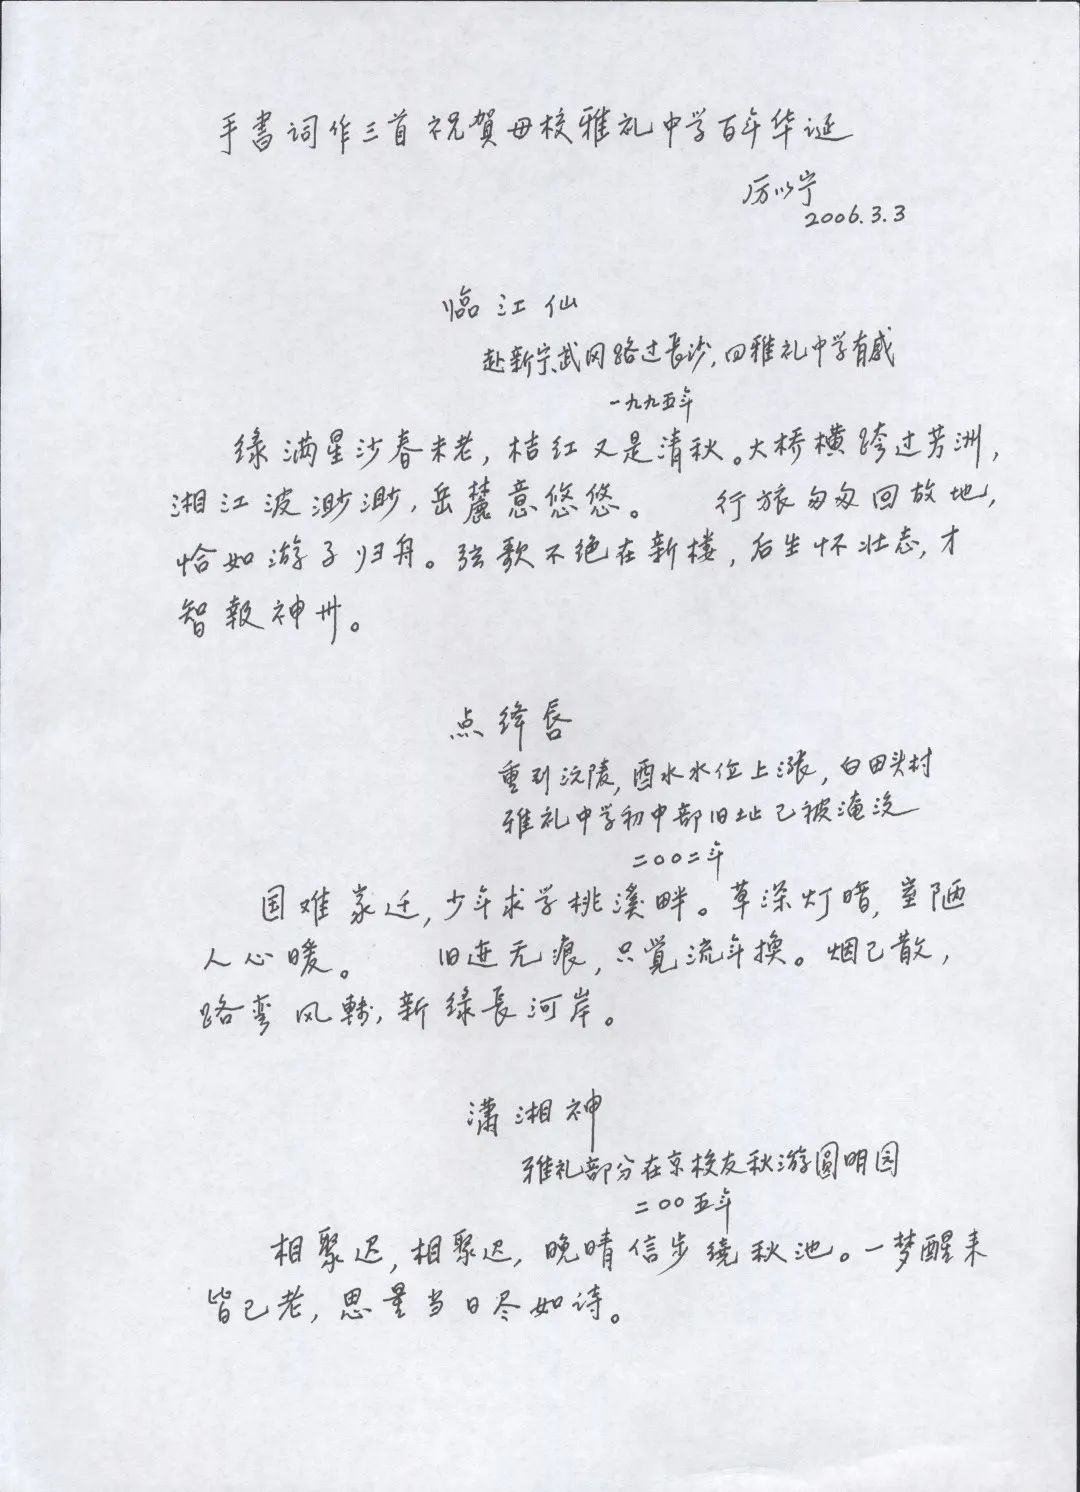 手書词作三首祝賀母校雅礼中学百年华诞
厉以宁
2006.3.3
临江仙
赴新宁、武冈路过長沙,回雅礼中学有感
一九九五年
绿满星沙春未老,桔红又是清秋。大桥横跨过芳洲,
湘江波渺渺,岳麓意悠悠。 行旅匆匆回故地,
恰如游子归舟。弦歌不绝在新楼,后生怀壮志,才
智報神州。
点绛唇
重到沅陵,酉水水位上漲,白田头村
雅礼中学初中部旧址已被淹没
二〇〇二年
国难家迁,少年求学桃溪畔。草深灯暗,室陋
人心暖。 旧迹无痕,只覚流年换。烟已散,
路弯风轉,新绿長河岸。
潇湘神
雅礼部分在京校友秋游圆明园
二〇〇五年
相聚迟,相聚迟,晚晴信步绕秋池。一梦醒来
皆已老,思量当日尽如诗。